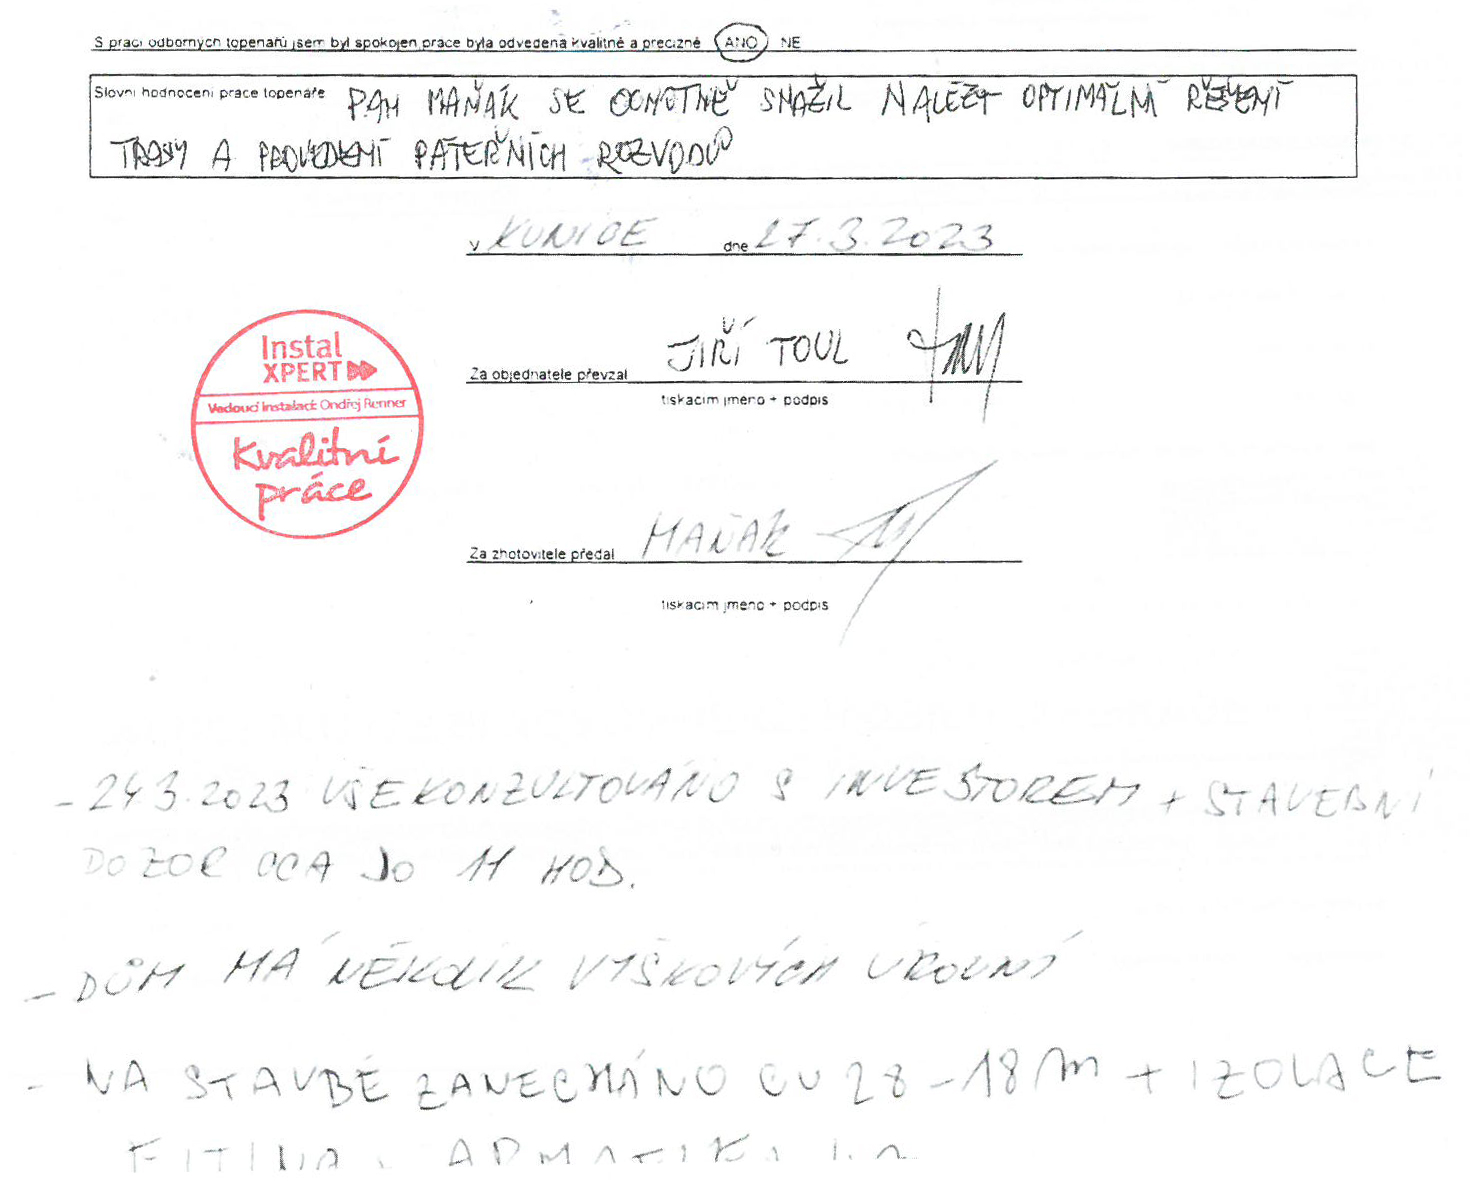 S prací odborných topenářů jsem byl spokojen práce byla odvedena kvalitně a precizně ANO NE
Slovní hodnocení práce topenáře PAN MAŇÁK SE OCHOTNĚ SNAŽIL NALÉZT OPTIMÁLNÍ ŘEŠENÍ
TRASY A PROVEDENÍ PÁTEŘNÍCH ROZVODŮ
v KUNICE dne 27.3.2023
Instal
XPERT
Vedoucí instalací: Ondřej Renner
Kvalitní
práce
JIŘÍ TOUL
Za objednatele převzal
tiskacím jméno + podpis
Za zhotovitele předal MAŇÁK
tiskacím jméno + podpis
- 24.3.2023 VŠE KONZULTOVÁNO S INVESTOREM + STAVEBNÍ
DOZOR CCA DO 11 HOD.
- DŮM MÁ NĚKOLIK VÝŠKOVÝCH ÚROVNÍ
- NA STAVBĚ ZANECHÁNO CU 28 - 18 m + IZOLACE